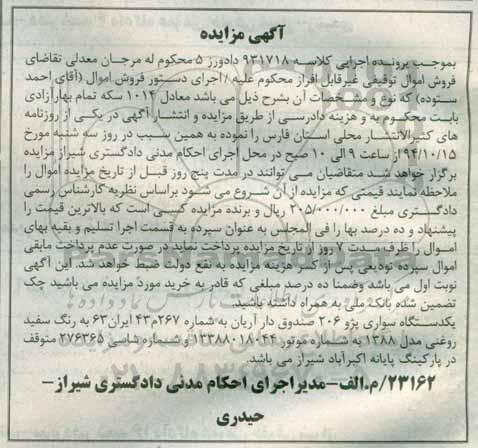 آگهی مزایده
بموجب پرونده اجرایی کلاسه ۹۳۱۷۱۸ دادورز ۵ محکوم له مرجان معدلی تقاضای
فروش اموال توقیفی غیرقابل افراز محکوم علیه / اجرای دستور فروش اموال (آقای احمد
ستوده) که نوع و مشخصات آن بشرح ذیل می باشد معادل ۱۰۱۴ سکه تمام بهارآزادی
بابت محکوم به و هزینه دادرسی از طریق مزایده و انتشار آگهی در یکی از روزنامه
های کثیرالانتشار محلی استان فارس را نموده به همین سبب در روز سه شنبه مورخ
۹۴/۱۰/۱۵ از ساعت ۹ الی ۱۰ صبح در محل اجرای احکام مدنی دادگستری شیراز مزایده
برگزار خواهد شد متقاضیان می توانند در مدت پنج روز قبل از تاریخ مزایده اموال را
ملاحظه نمایند قیمتی که مزایده از آن شروع می شود براساس نظریه کارشناس رسمی
دادگستری مبلغ ۳۰۵/۰۰۰/۰۰۰ ریال و برنده مزایده کسی است که بالاترین قیمت را
پیشنهاد و ده درصد بها را فی المجلس به عنوان سپرده به قسمت اجرا تسلیم و بقیه بهای
اموال را ظرف مدت ۷ روز از تاریخ مزایده پرداخت نماید در صورت عدم پرداخت مابقی
اموال سپرده تودیعی پس از کسر هزینه مزایده به نفع دولت ضبط خواهد شد. این آگهی
نوبت اول می باشد وضمنا ده درصد مبلغی که قادر به خرید مورد مزایده می باشید چک
تضمین شده بانک ملی به همراه داشته باشید.
یکدستگاه سواری پژو ۲۰۶ صندوق دار آریان به شماره ۲۶۷م۴۳ ایران۶۳ به رنگ سفید
روغنی مدل ۱۳۸۸ به شماره موتور ۱۳۳۸۸۰۱۸۰۴۴ و شماره شاسی ۲۷۶۳۶۵ متوقف
در پارکینگ پایانه اکبرآباد شیراز می باشد.
۲۳۱۶۲/م.الف-مدیراجرای احکام مدنی دادگستری شیراز-
حیدری